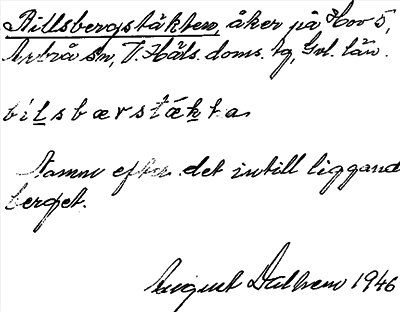 Billsbergstäkten, åker på Hov 5,
Arbrå sn, V. Häls. doms. tg, Gvl. län.
bilsbærstækta
Namn efter det intill liggand
berget.
August Dalhem 1946